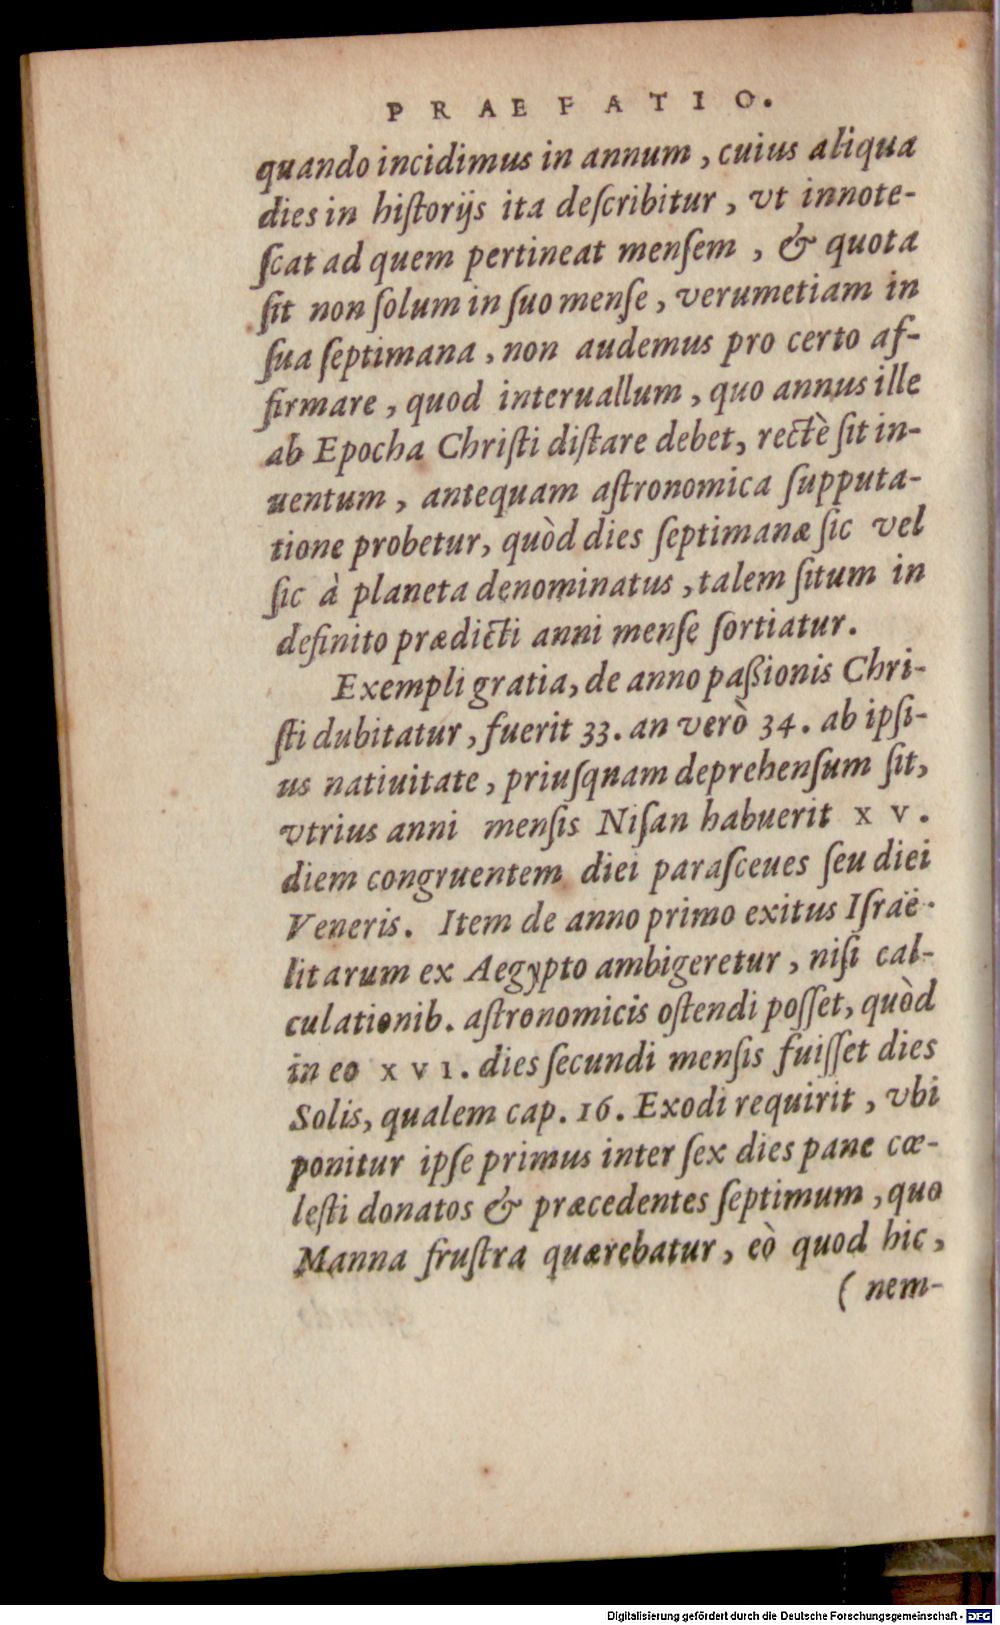 PRAEFATIO.
quando incidimus in annum, cuius aliqua
dies in hiſtorijs ita deſcribitur, vt innote-
ſcat ad quem pertineat menſem, & quota
ſit non ſolum in ſuo menſe, verumetiam in
ſua ſeptimana, non audemus pro certo af-
firmare, quod interuallum, quo annus ille
ab Epocha Chriſti diſtare debet, rectè ſit in-
uentum, antequam aſtronomica ſupputa-
tione probetur, quòd dies ſeptimanæ ſic vel
ſic à planeta denominatus, talem ſitum in
definito prædicti anni menſe ſortiatur.
Exempli gratia, de anno paßionis Chri-
ſti dubitatur, fuerit 33. an verò 34. ab ipſi-
us natiuitate, priuſqnam deprehenſum ſit,
vtrius anni menſis Niſan habuerit XV.
diem congruentem diei paraſceues ſeu diei
Veneris. Item de anno primo exitus Iſraë-
litarum ex Aegypto ambigeretur, niſi cal-
culationib. aſtronomicis oſtendi poſſet, quòd
in eo XVI. dies ſecundi menſis fuiſſet dies
Solis, qualem cap. 16. Exodi requirit, vbi
ponitur ipſe primus inter ſex dies pane cœ-
leſti donatos & præcedentes ſeptimum, quo
Manna fruſtra quærebatur, eò quod hic,
( nem-
Digitalisierung gefördert durch die Deutsche Forschungsgemeinschaft - DFG